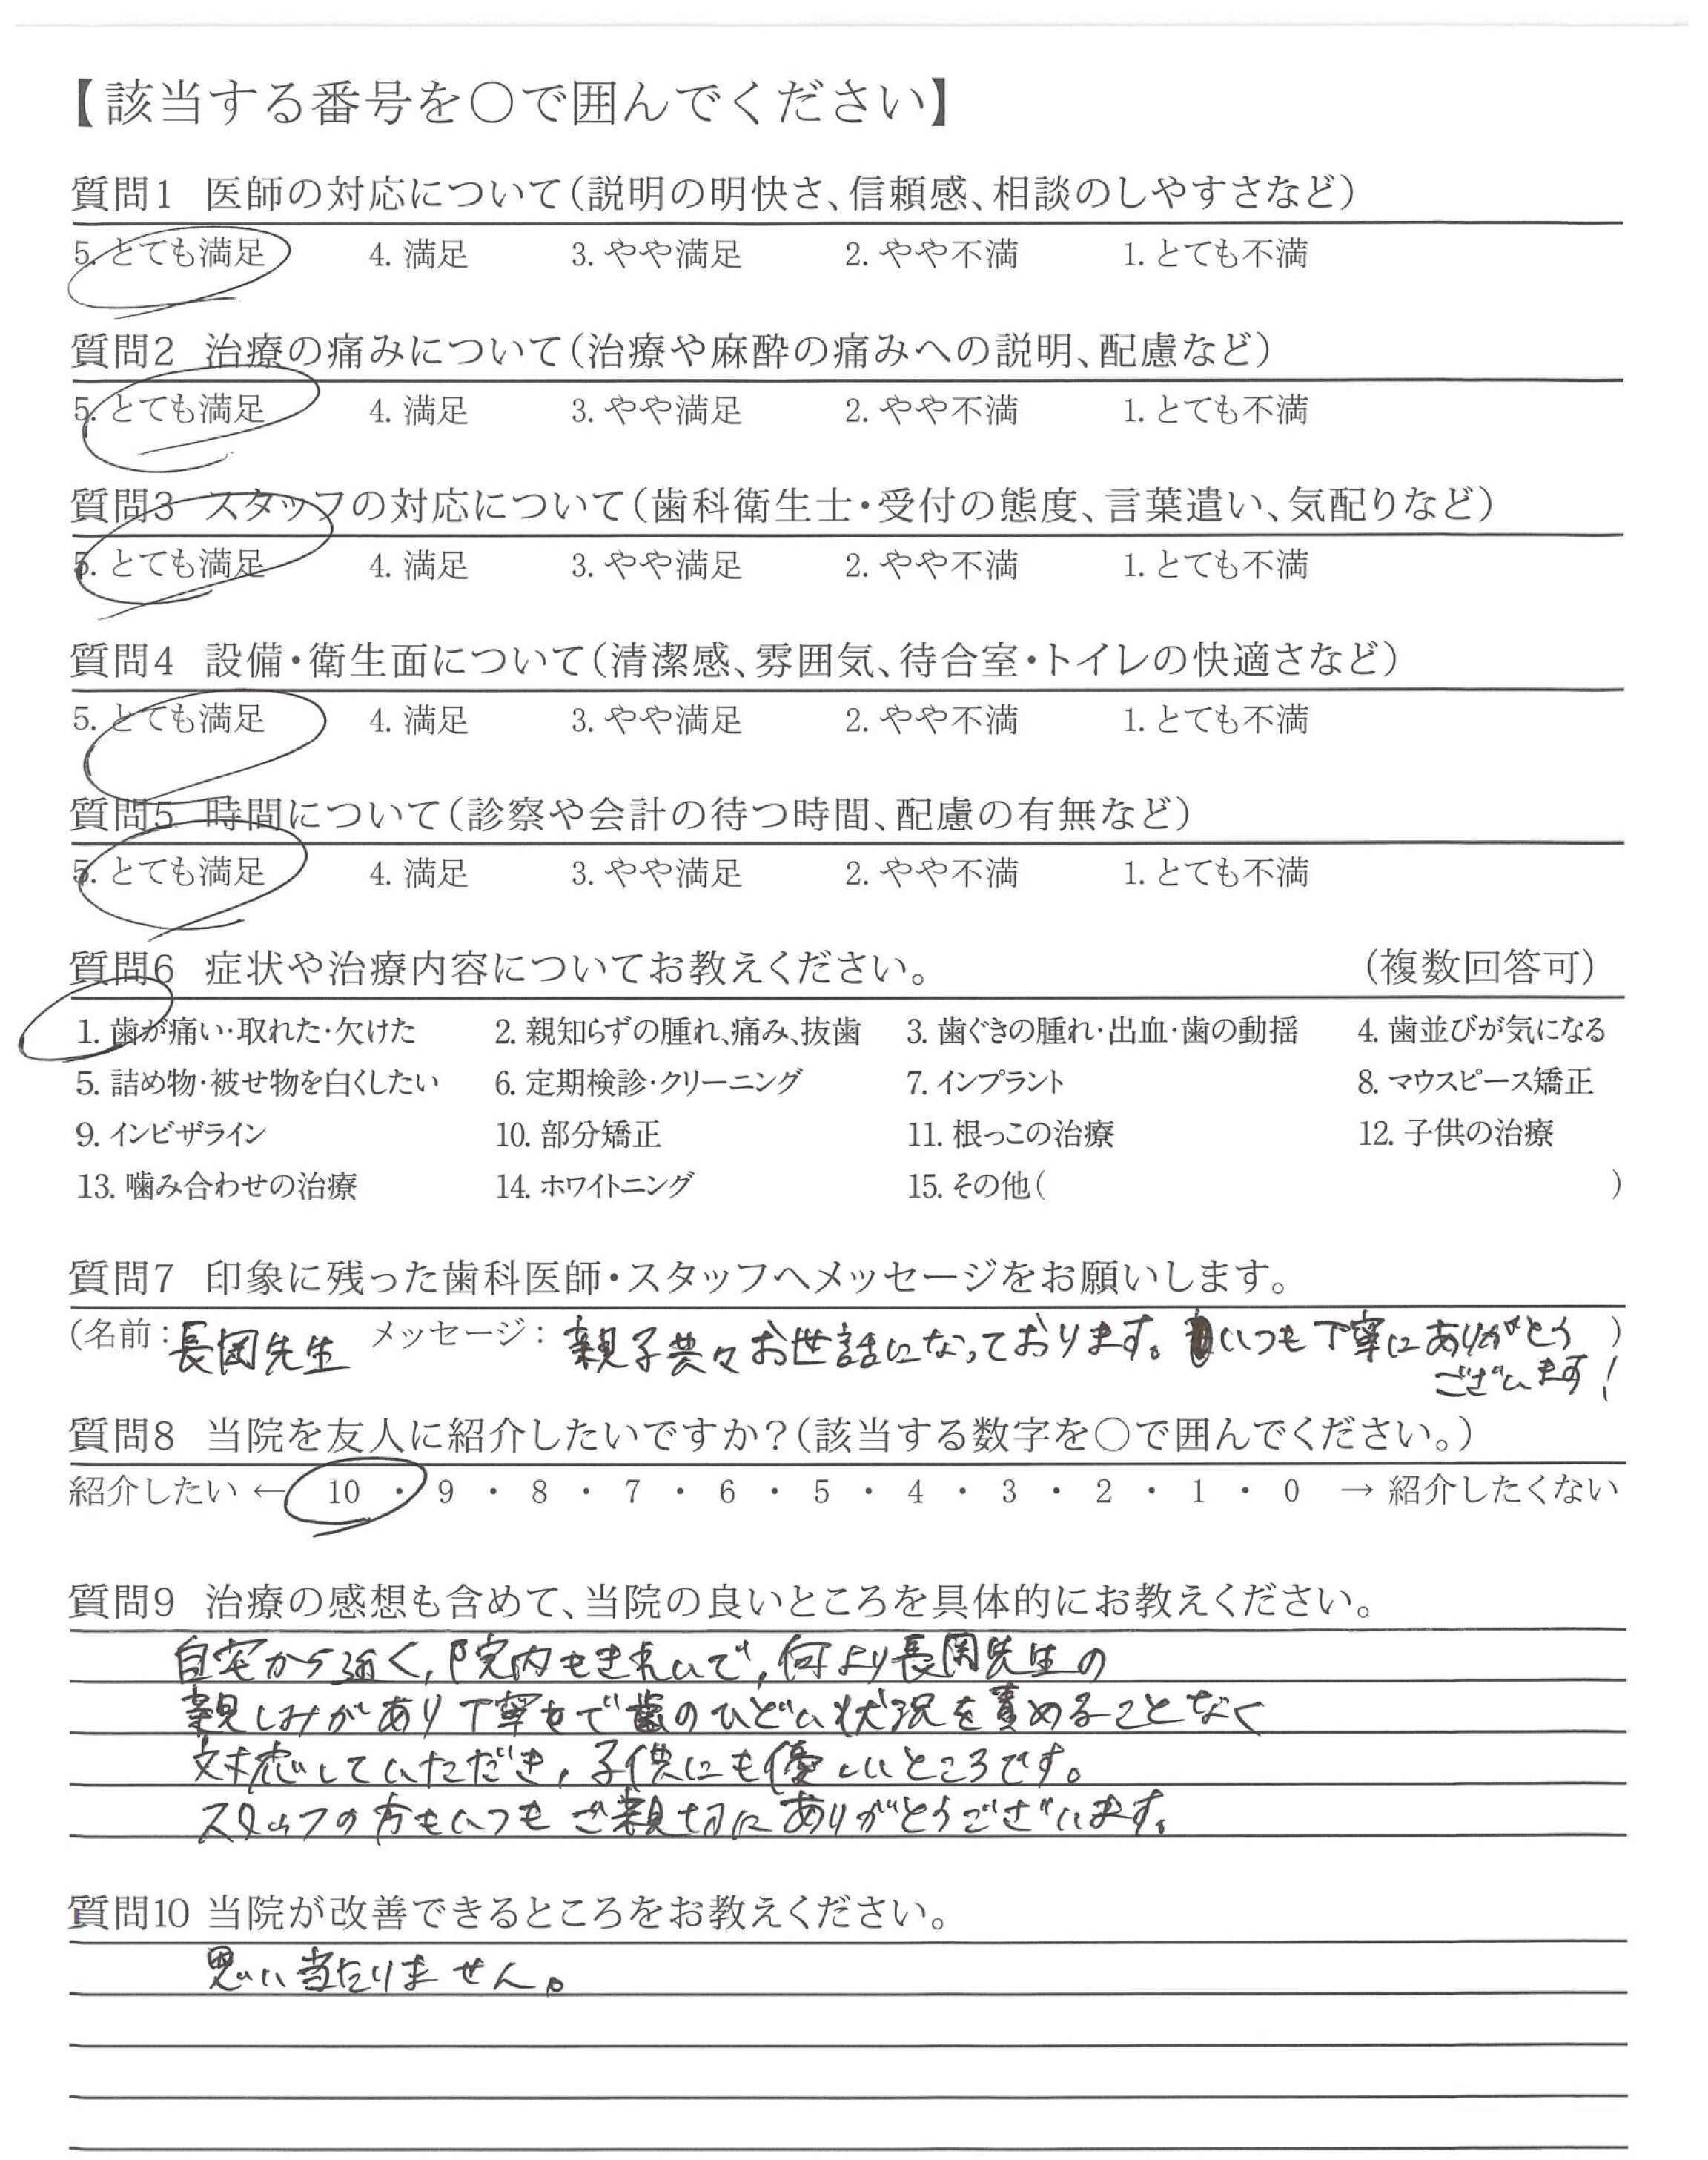 【該当する番号を〇で囲んでください】
質問1 医師の対応について(説明の明快さ、信頼感、相談のしやすさなど)
5. とても満足 4. 満足 3. やや満足 2. やや不満 1. とても不満
質問2 治療の痛みについて(治療や麻酔の痛みへの説明、配慮など)
5. とても満足 4. 満足 3. やや満足 2. やや不満 1. とても不満
質問3 スタッフの対応について(歯科衛生士・受付の態度、言葉遣い、気配りなど)
5. とても満足 4. 満足 3. やや満足 2. やや不満 1. とても不満
質問4 設備・衛生面について(清潔感、雰囲気、待合室・トイレの快適さなど)
5. とても満足 4. 満足 3. やや満足 2. やや不満 1. とても不満
質問5 時間について(診察や会計の待つ時間、配慮の有無など)
5. とても満足 4. 満足 3. やや満足 2. やや不満 1. とても不満
質問6 症状や治療内容についてお教えください。 (複数回答可)
1. 歯が痛い・取れた・欠けた 2. 親知らずの腫れ、痛み、抜歯 3. 歯ぐきの腫れ・出血・歯の動揺 4. 歯並びが気になる
5. 詰め物・被せ物を白くしたい 6. 定期検診・クリーニング 7. インプラント 8. マウスピース矯正
9. インビザライン 10. 部分矯正 11. 根っこの治療 12. 子供の治療
13. 噛み合わせの治療 14. ホワイトニング 15. その他( )
質問7 印象に残った歯科医師・スタッフへメッセージをお願いします。
(名前: 長岡先生 メッセージ: 親子共々お世話になっております。いつも丁寧にありがとう )
ございます!
質問8 当院を友人に紹介したいですか?(該当する数字を〇で囲んでください。)
紹介したい ← 10 ・ 9 ・ 8 ・ 7 ・ 6 ・ 5 ・ 4 ・ 3 ・ 2 ・ 1 ・ 0 → 紹介したくない
質問9 治療の感想も含めて、当院の良いところを具体的にお教えください。
自宅から近く,院内もきれいで,何より長岡先生の
親しみがあり丁寧で歯のひどい状況を責めることなく
対応していただき,子供にも優しいところです。
スタッフの方もいつもご親切にありがとうございます。
質問10 当院が改善できるところをお教えください。
思い当たりません。